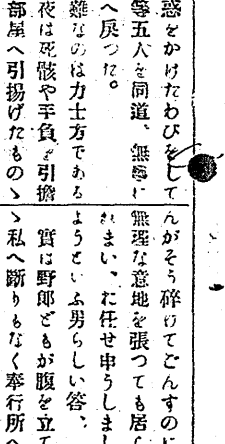 惑をかけたわびをして
等五人を同道、無
へ戻つた。
難なのは力士方である
夜は死骸や手負を引擔
部屋へ引揚げたものゝ
んがそう碎けてごんすのに
無理な意地を張つても居ら
まい、お任せ申うしまし
ようといふ男らしい答、
實は野郎どもが腹を立て
ゝ私へ斷りもなく奉行所へ